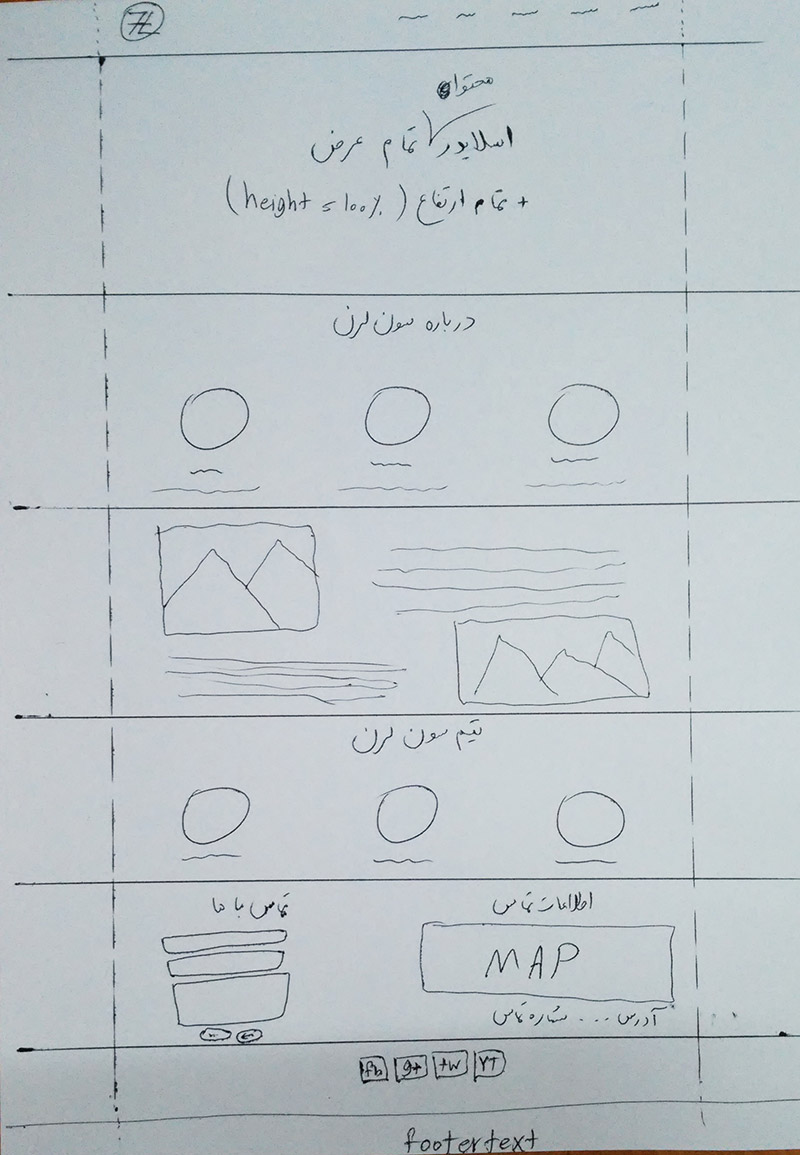 7L
محتوا
اسلایدر تمام عرض
+ تمام ارتفاع (height = 100%)
درباره سون لرن
تیم سون لرن
اطلاعات تماس
تماس با ما
MAP
آدرس ... شماره تماس
fb g+ tw YT
footertext